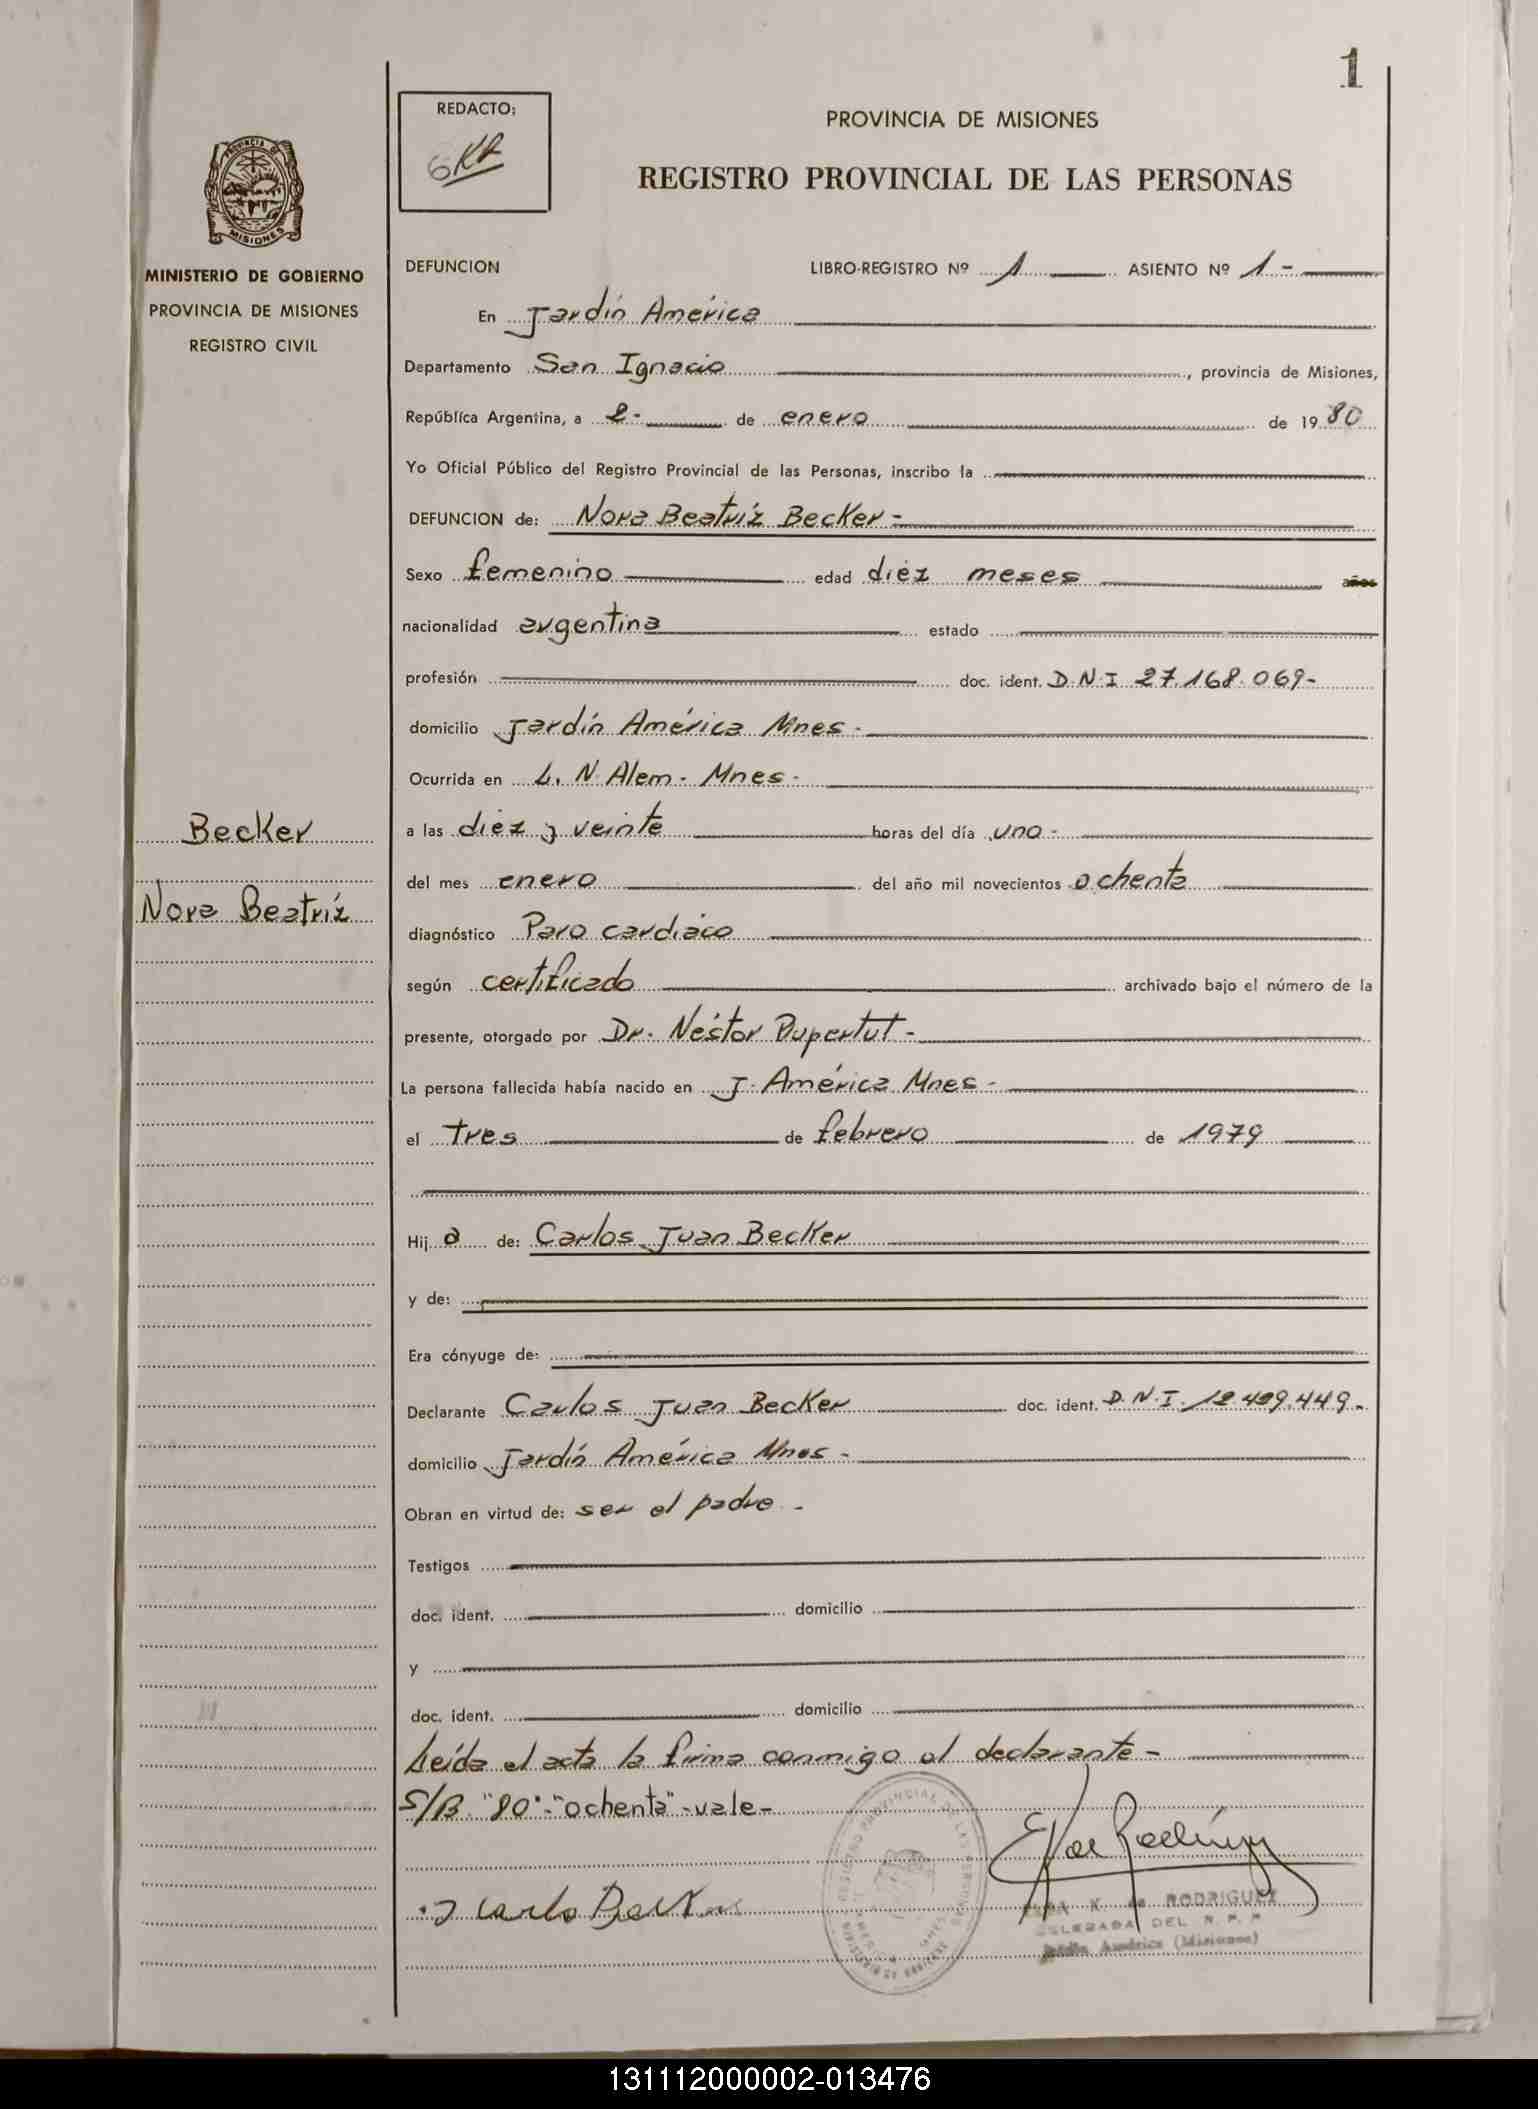 1
REDACTO:
PROVINCIA DE MISIONES
REGISTRO PROVINCIAL DE LAS PERSONAS
PROVINCIA DE
MISIONES
MINISTERIO DE GOBIERNO
PROVINCIA DE MISIONES
REGISTRO CIVIL
Becker
Nora Beatríz
DEFUNCION LIBRO-REGISTRO Nº 1 ASIENTO Nº 1-
En Jardín América
Departamento San Ignacio, provincia de Misiones,
República Argentina, a 2- de enero de 1980
Yo Oficial Público del Registro Provincial de las Personas, inscribo la
DEFUNCION de: Nora Beatríz Becker-
Sexo femenino edad diéz meses años
nacionalidad argentina estado
profesión doc. ident. D.N.I 27.168.069-
domicilio Jardín América Mnes-
Ocurrida en L. N. Alem- Mnes-
a las diéz y veinte horas del día uno-
del mes enero del año mil novecientos ochenta
diagnóstico Paro cardíaco
según certificado archivado bajo el número de la
presente, otorgado por Dr. Néstor Dupertut-
La persona fallecida había nacido en J. América Mnes-
el tres de febrero de 1979
Hija de: Carlos Juan Becker
y de:
Era cónyuge de:
Declarante Carlos Juan Becker doc. ident. D.N.I. 12.429.449-
domicilio Jardín América Mnes-
Obran en virtud de: ser el padre-
Testigos
doc. ident. domicilio
y
doc. ident. domicilio
Leída el acta la firma conmigo el declarante-
S/B "80"-"ochenta"-vale-
REGISTRO PROVINCIAL DE LAS PERSONAS
K. de RODRIGUEZ
DELEGADA DEL R. P. P.
Jardín América (Misiones)
131112000002-013476